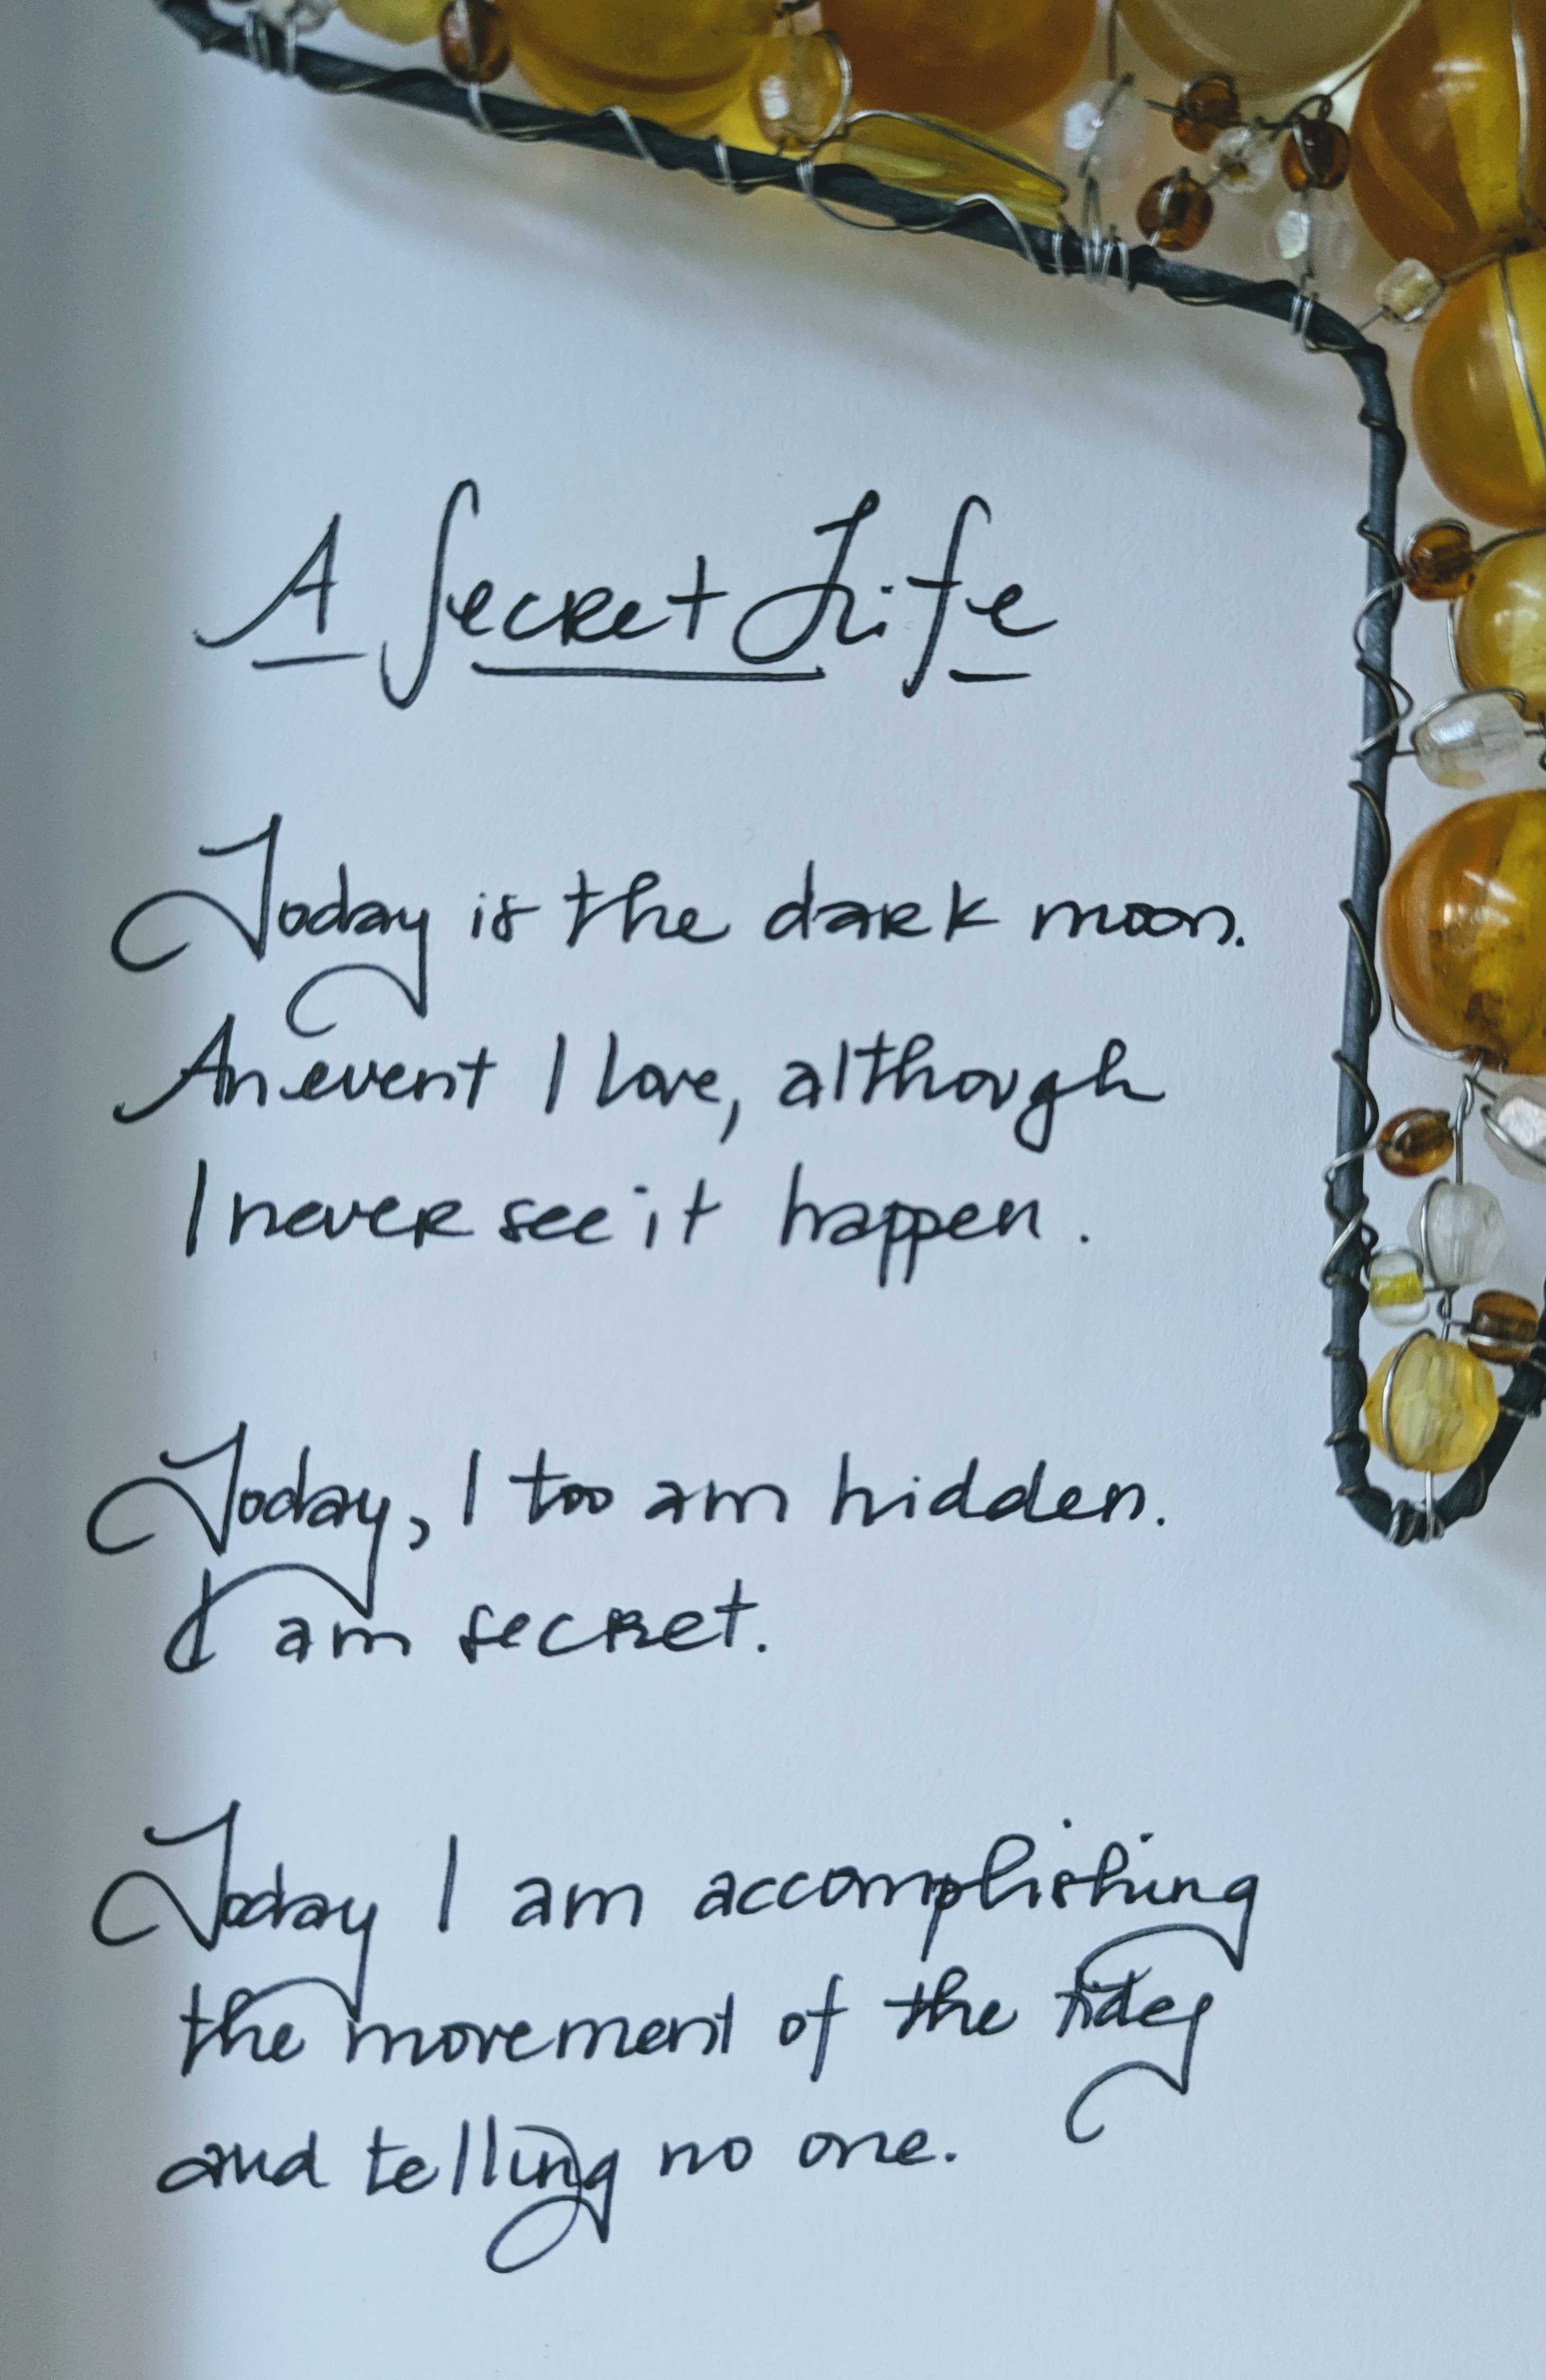 A Secret Life
Today is the dark moon.
An event I love, although
I never see it happen.
Today, I too am hidden.
I am secret.
Today I am accomplishing
the movement of the tides
and telling no one.